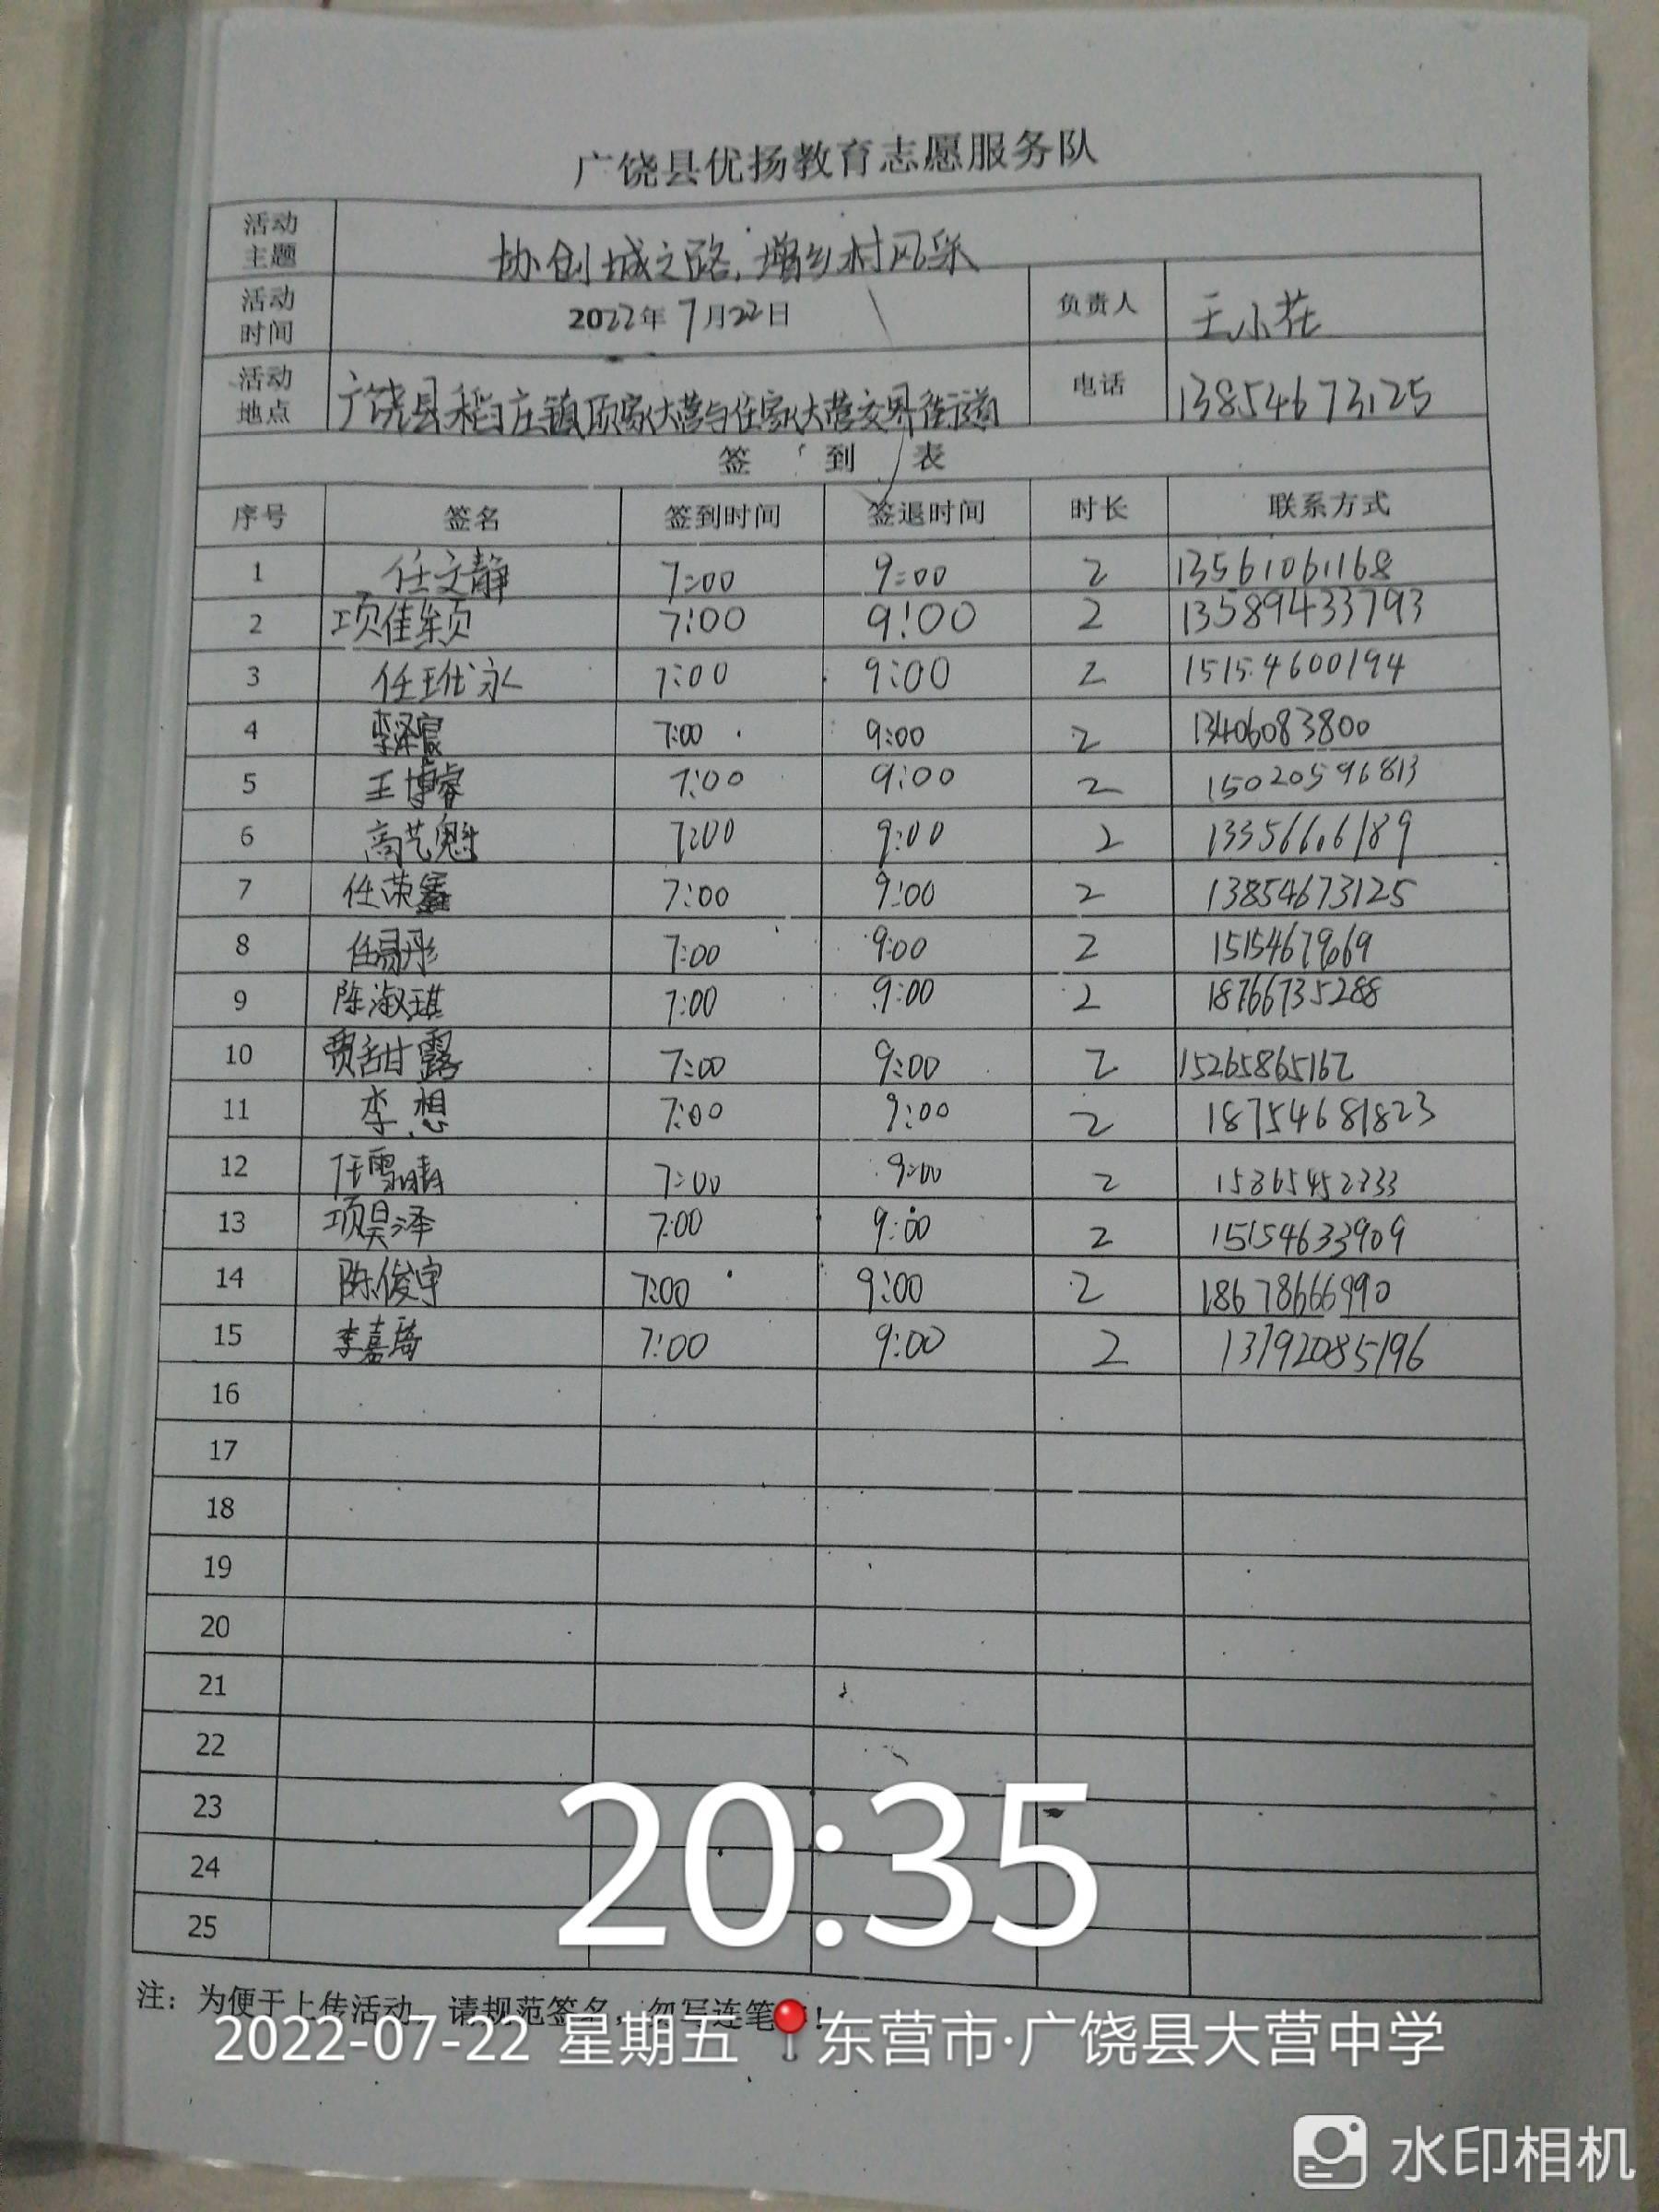 广饶县优扬教育志愿服务队
活动主题 协创城之路，增乡村风采
活动时间 2022年7月22日 负责人 王小花
活动地点 广饶县稻庄镇项家大营与任家大营交界街道 电话 13854673125
签 到 表
序号 签名 签到时间 签退时间 时长 联系方式
1 任文静 7:00 9:00 2 13561061168
2 项佳颖 7:00 9:00 2 13589433793
3 任玳永 7:00 9:00 2 15154600194
4 李泽宸 7:00 9:00 2 13406083800
5 王博睿 7:00 9:00 2 15020596813
6 高艺魁 7:00 9:00 2 13356606189
7 任荣鑫 7:00 9:00 2 13854673125
8 任易彤 7:00 9:00 2 15154679069
9 陈淑琪 7:00 9:00 2 18766735288
10 贾甜露 7:00 9:00 2 15265865162
11 李想 7:00 9:00 2 18754681823
12 任雪晴 7:00 9:00 2
13 项昊泽 7:00 9:00 2 15154633909
14 陈俊宇 7:00 9:00 2 18678666990
15 李嘉琦 7:00 9:00 2 13792085196
16
17
18
19
20
21
22
23
24
25
20:35
注：为便于上传活动，请规范签名，勿写连笔！
2022-07-22 星期五 东营市·广饶县大营中学
水印相机